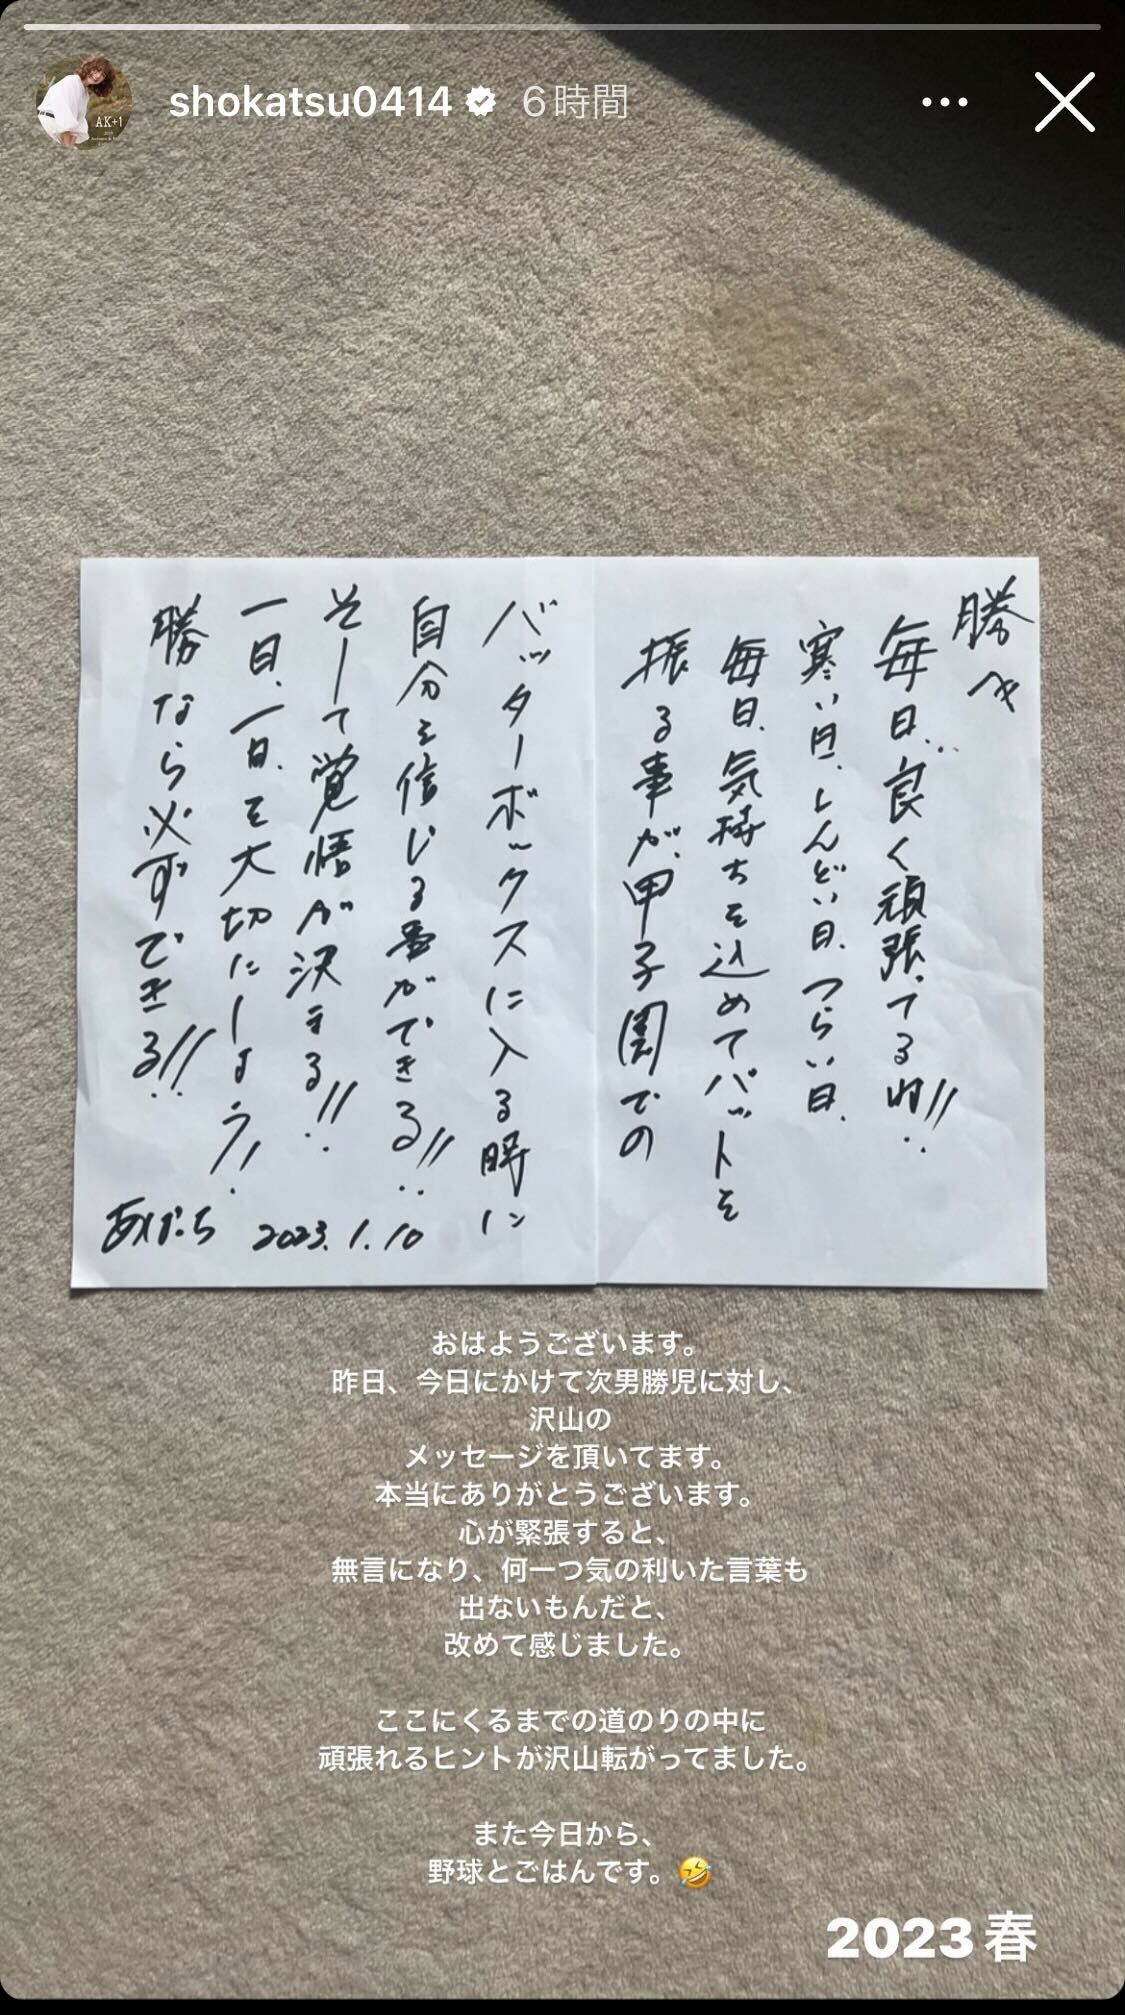 shokatsu0414 6時間
AK+1
勝へ
毎日、良く頑張ってるね!!
寒い日、しんどい日、つらい日、
毎日、気持ちを込めてバットを
振る事が、甲子園での
バッターボックスに入る時に
自分を信じる事ができる!!
そして覚悟が決まる!!
一日、一日、を大切にしよう!
勝なら必ずできる!!
2023.1.10
おはようございます。
昨日、今日にかけて次男勝児に対し、
沢山の
メッセージを頂いてます。
本当にありがとうございます。
心が緊張すると、
無言になり、何一つ気の利いた言葉も
出ないもんだと、
改めて感じました。
ここにくるまでの道のりの中に
頑張れるヒントが沢山転がってました。
また今日から、
野球とごはんです。🤣
2023春